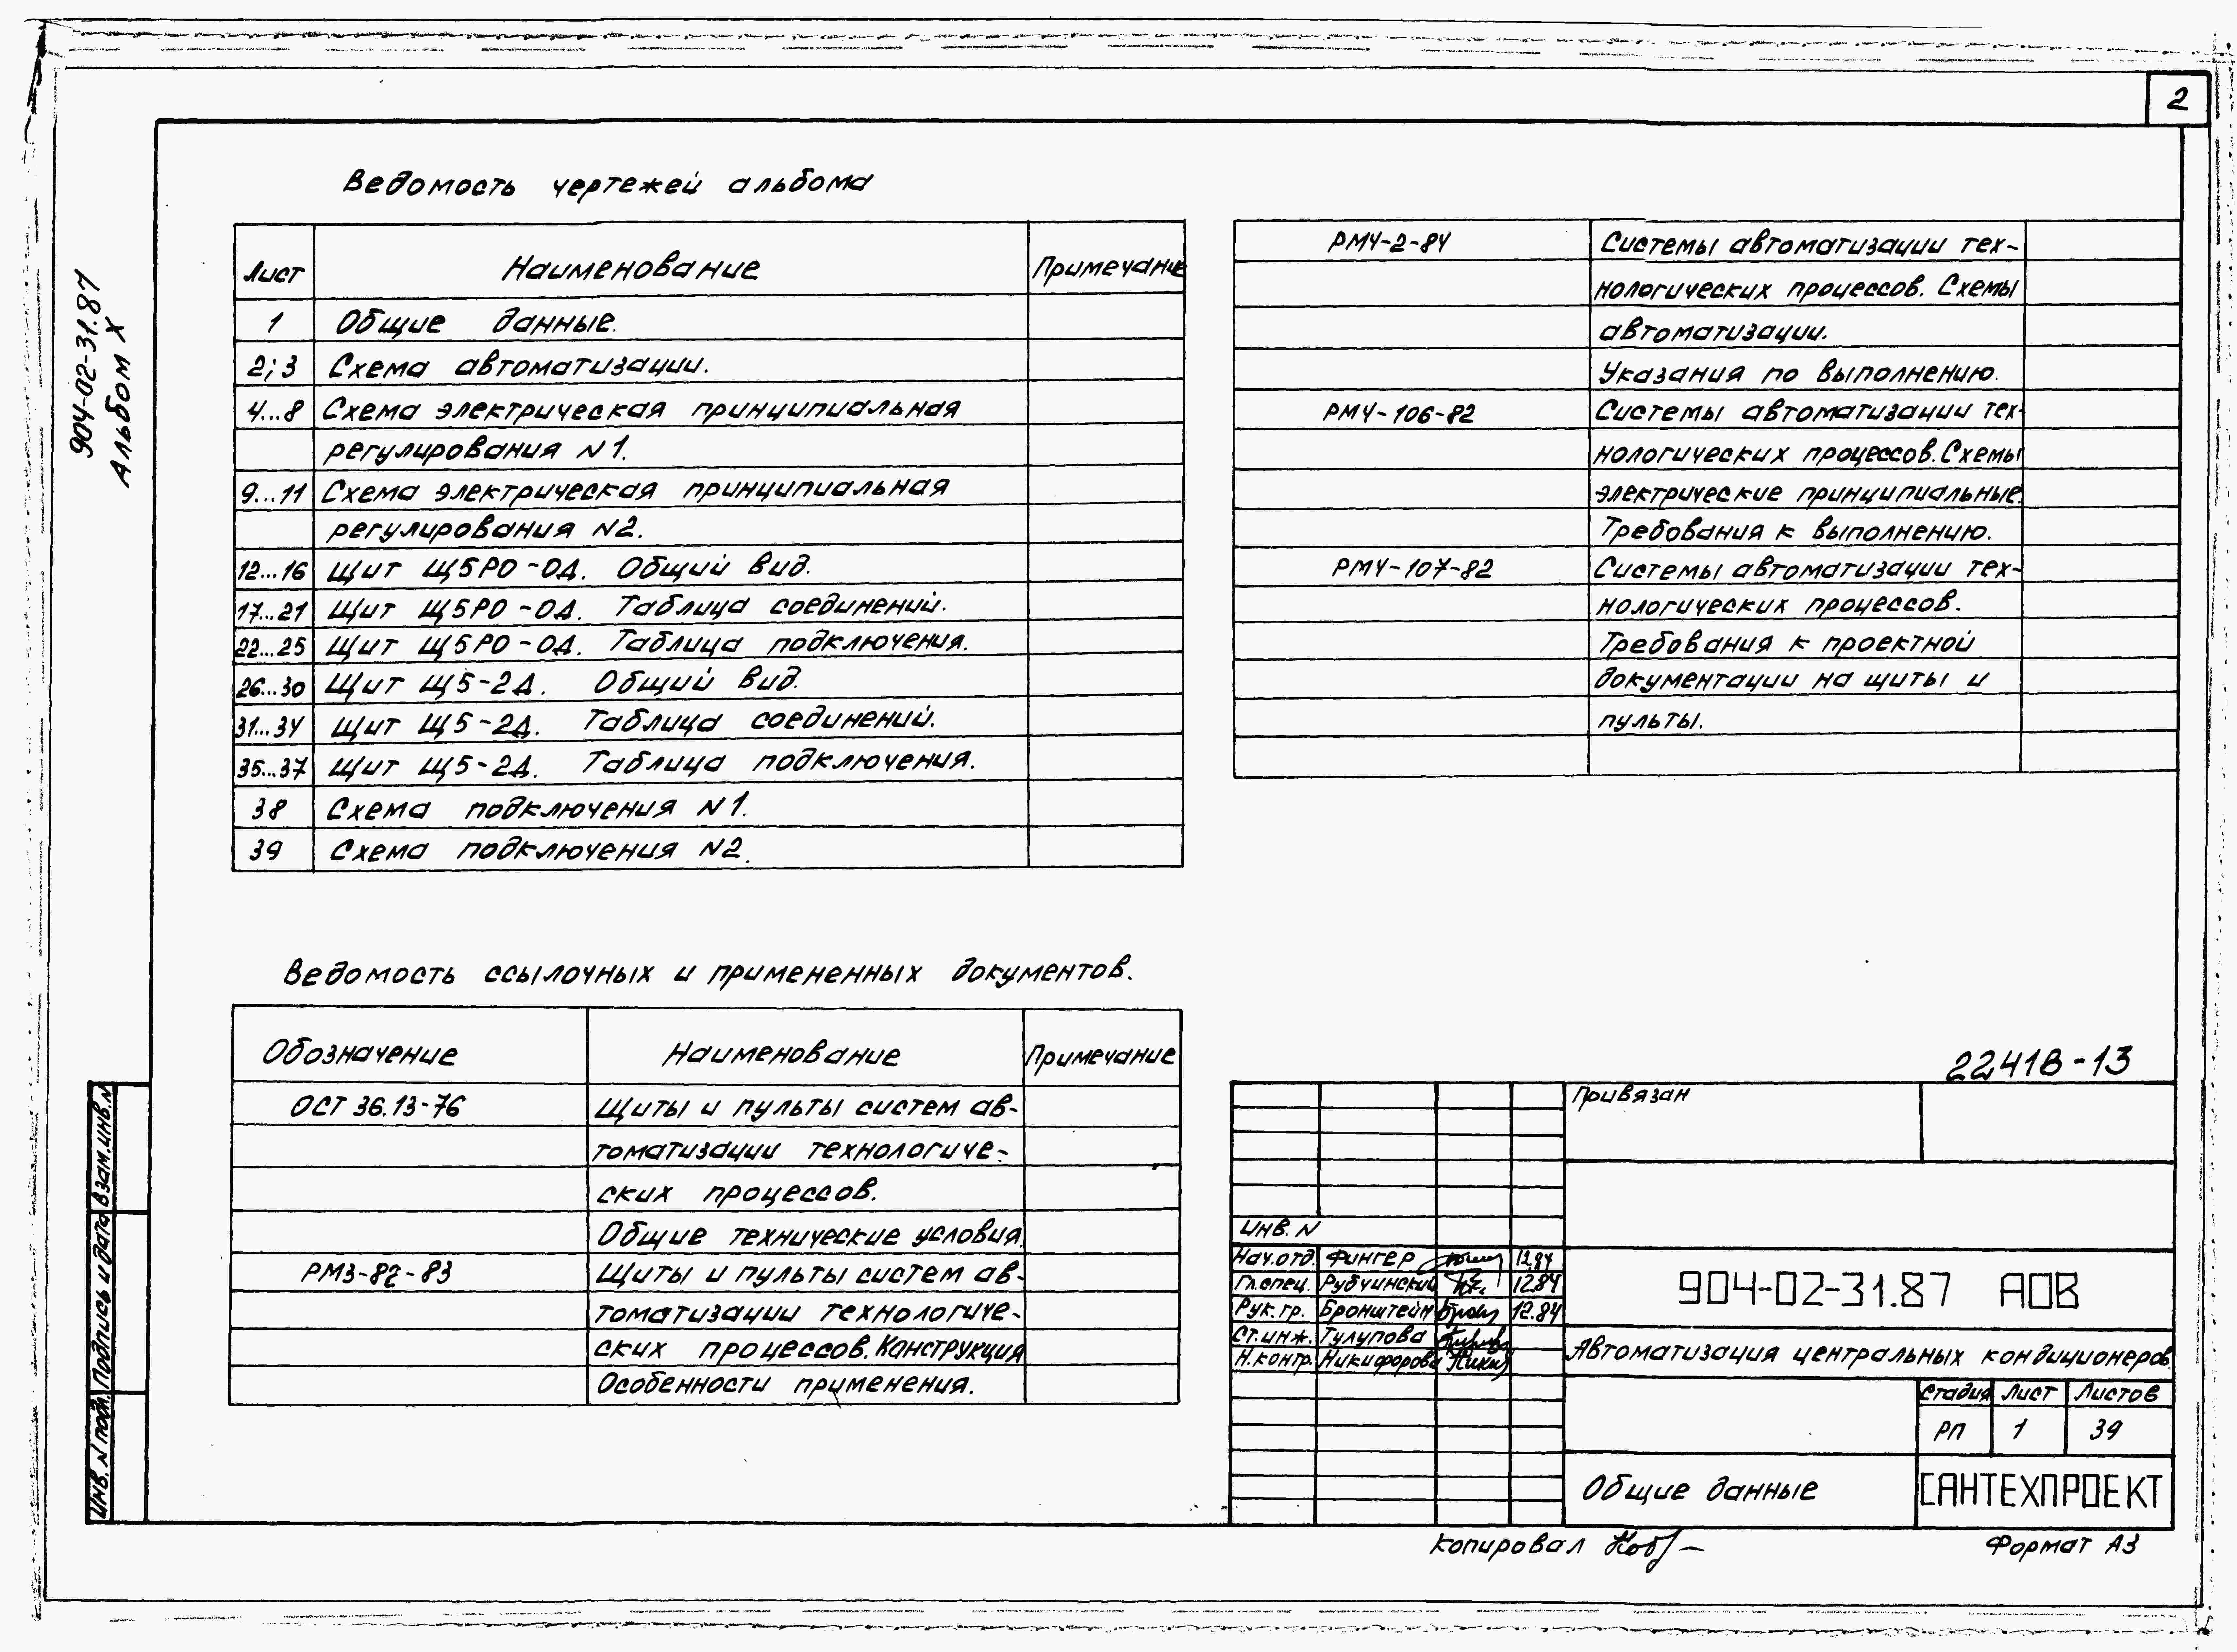 2
904-02-31.87
Альбом X
Ведомость чертежей альбома
Лист Наименование Примечание
1 Общие данные.
2;3 Схема автоматизации.
4...8 Схема электрическая принципиальная
регулирования N1.
9...11 Схема электрическая принципиальная
регулирования N2.
12...16 Щит Щ5РО-ОД. Общий вид.
17...21 Щит Щ5РО-ОД. Таблица соединений.
22...25 Щит Щ5РО-ОД. Таблица подключения.
26...30 Щит Щ5-2Д. Общий вид.
31...34 Щит Щ5-2Д. Таблица соединений.
35...37 Щит Щ5-2Д. Таблица подключения.
38 Схема подключения N1.
39 Схема подключения N2.
Ведомость ссылочных и примененных документов.
Обозначение Наименование Примечание
ОСТ 36.13-76 Щиты и пульты систем ав-
томатизации технологиче-
ских процессов.
Общие технические условия.
РМ3-82-83 Щиты и пульты систем ав-
томатизации технологиче-
ских процессов. Конструкция
Особенности применения.
РМ4-2-84 Системы автоматизации тех-
нологических процессов. Схемы
автоматизации.
Указания по выполнению.
РМ4-106-82 Системы автоматизации тех-
нологических процессов. Схемы
электрические принципиальные.
Требования к выполнению.
РМ4-107-82 Системы автоматизации тех-
нологических процессов.
Требования к проектной
документации на щиты и
пульты.
22418-13
Привязан
Инв. N
Нач.отд. Фингер 12.84
Гл.спец. Рубчинский 12.84
Рук.гр. Бронштейн 12.84
Ст.инж. Тулупова
Н.контр. Никифорова
904-02-31.87 АОВ
Автоматизация центральных кондиционеров.
Стадия Лист Листов
РП 1 39
Общие данные
САНТЕХПРОЕКТ
Копировал
Формат А3
Взам.инв.N
Подпись и дата
Инв. N подл.